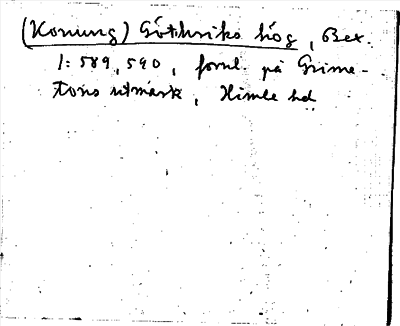 (Konung) Göthriks hög, Bex.
1: 589, 590, fornl på Grime-
tons utmark, Himle hd